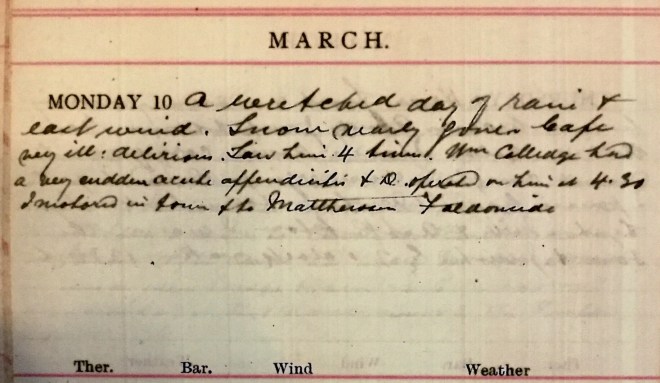 MARCH.
MONDAY 10 A wretched day of rain &
east wind. Snow nearly gone. Cape
very ill: delirious. Saw him 4 times. Wm Colledge had
a very sudden acute appendicitis & D. operated on him at 4.30
I motored in town & to Falldonside
Ther. Bar. Wind Weather